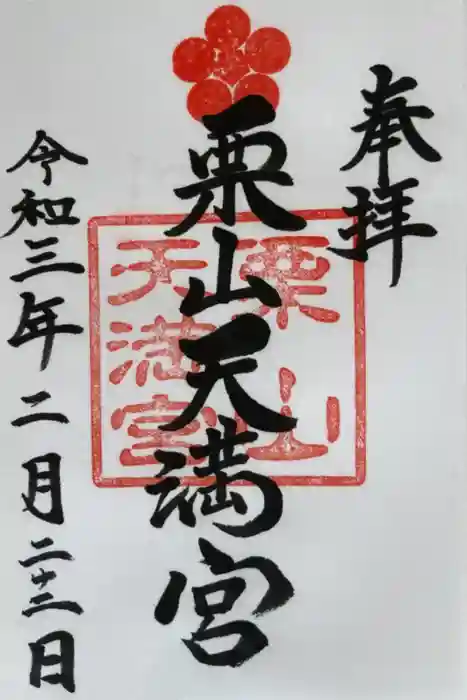 奉拝
栗山天満宮
栗山
天満宮
令和三年二月二十二日